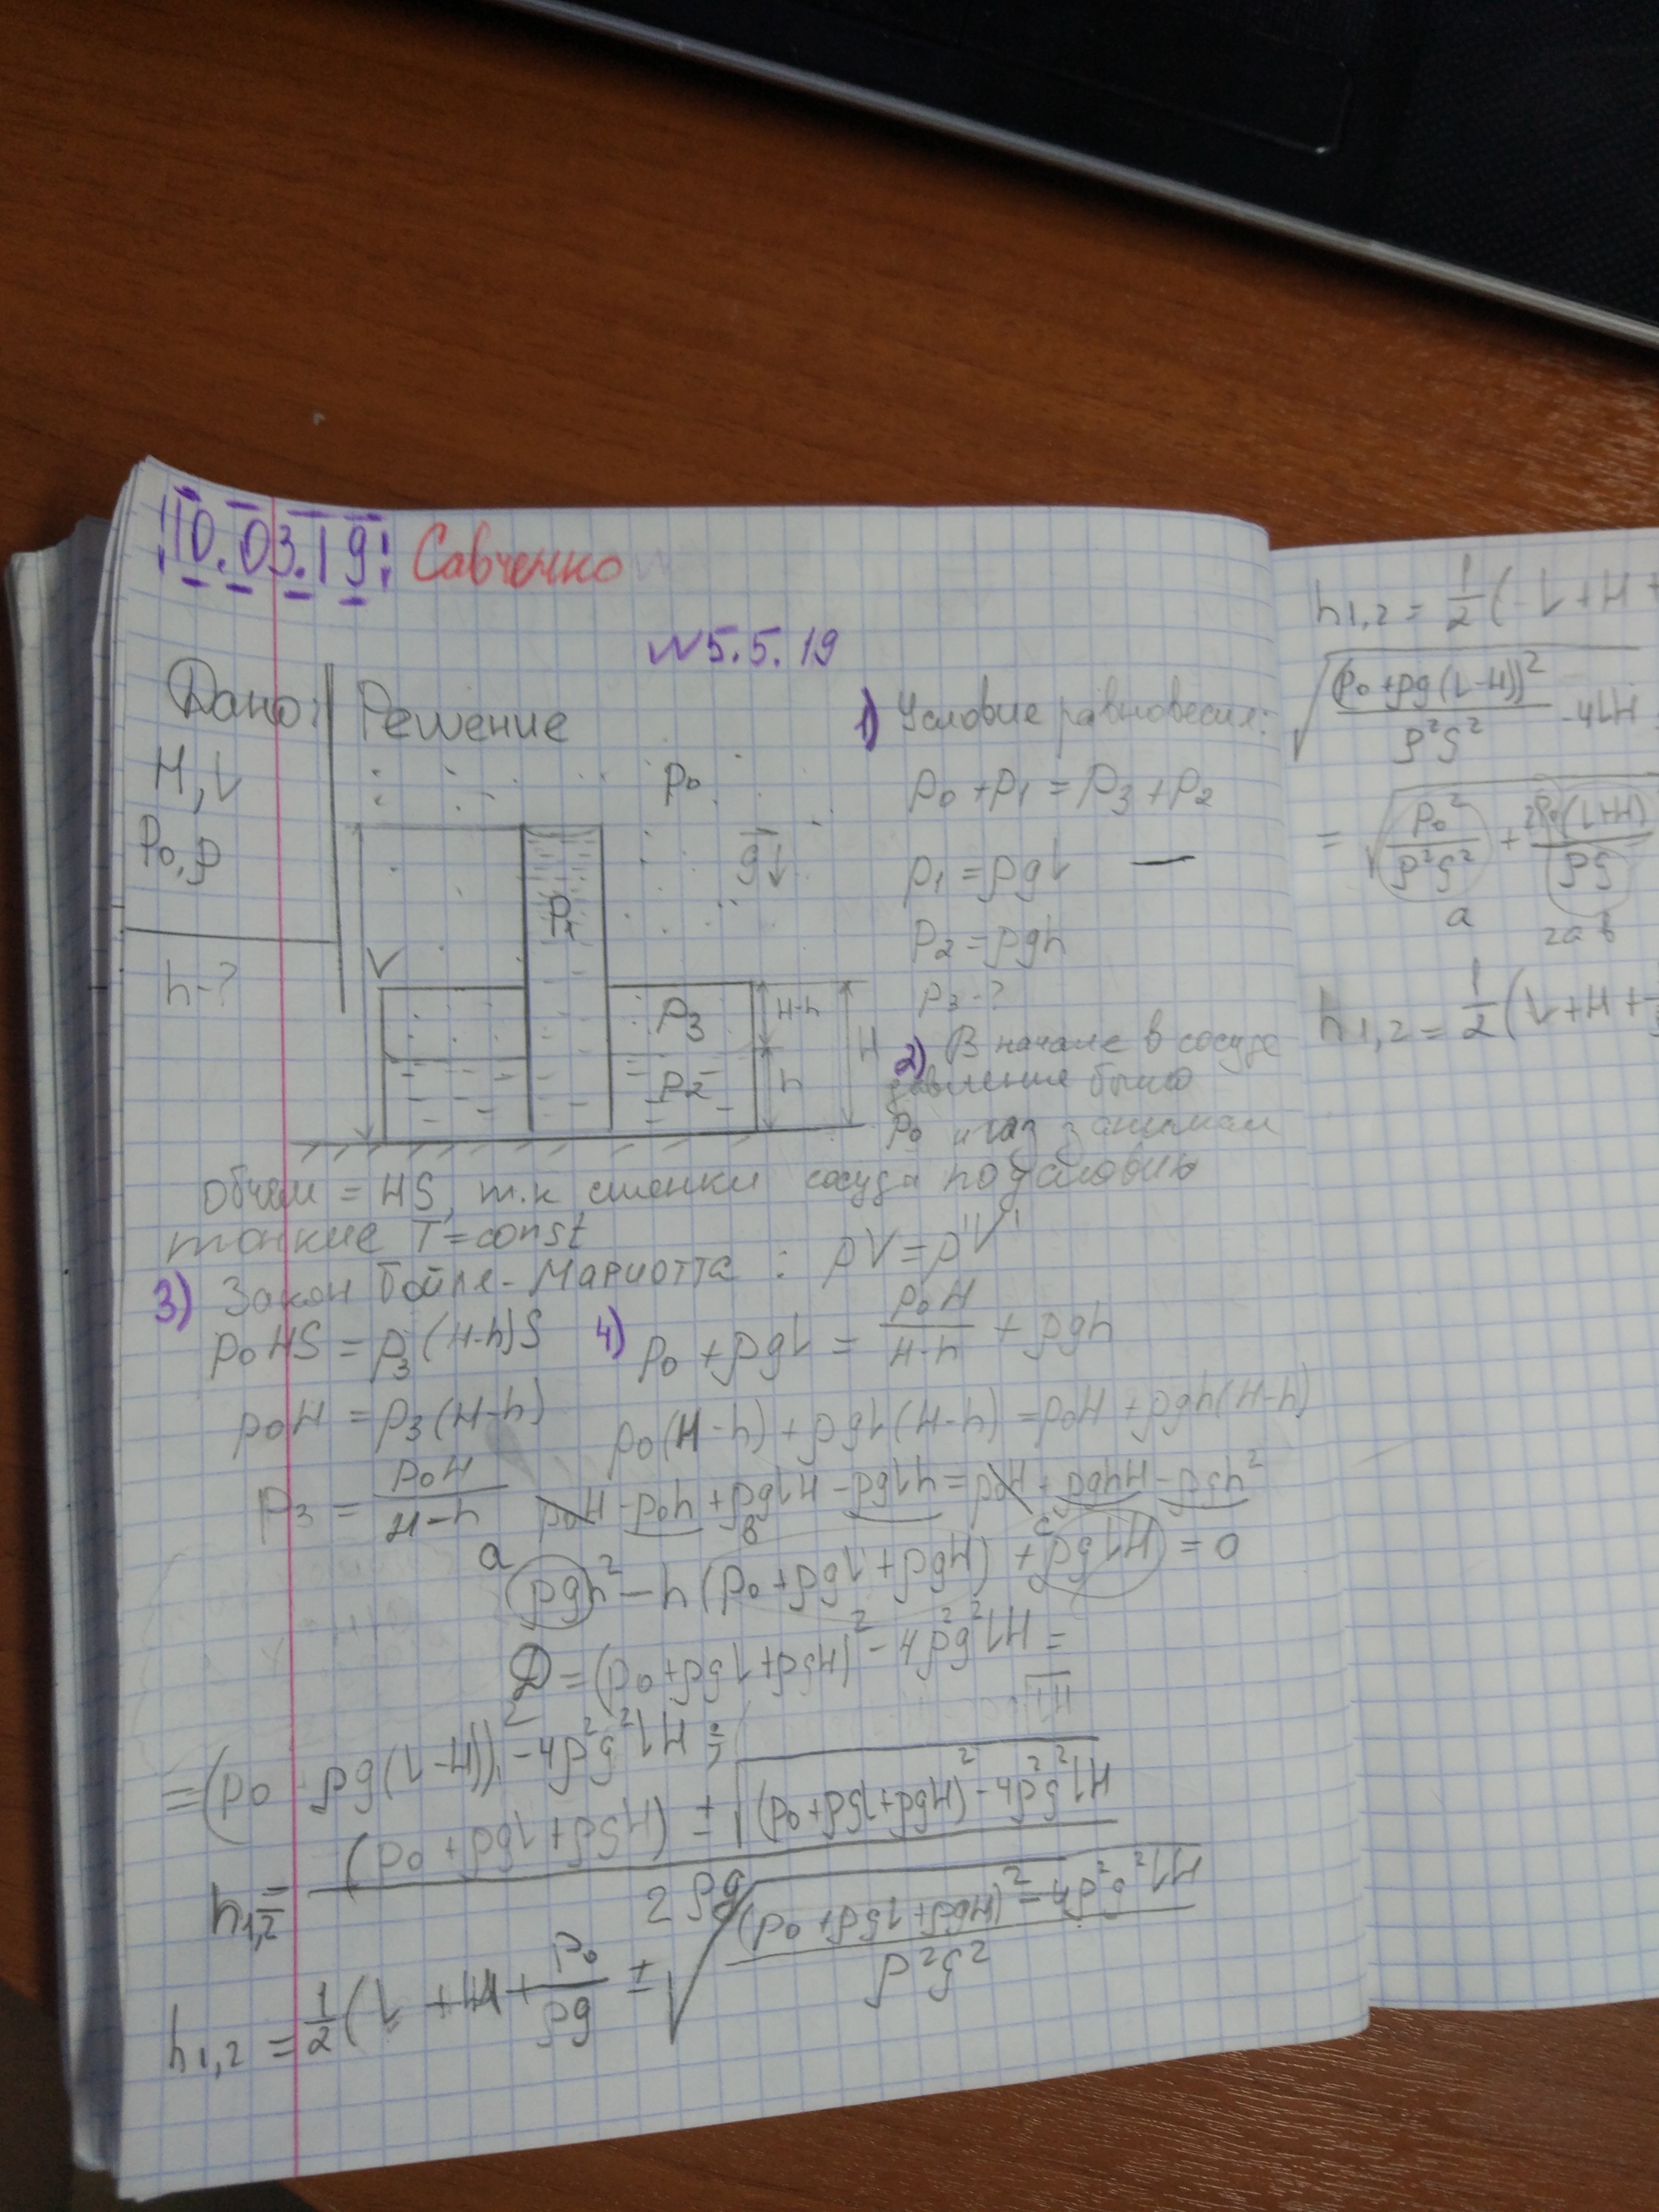 10.03.19! Савченко
№5.5.19
Дано: Решение
H, L
P₀, ρ
h-?
P₀
g↓
P₁
P₃
P₂
H-h
h
H
1) Условие равновесия:
p₀ + p₁ = p₃ + p₂
p₁ = ρgL —
p₂ = ρgh
p₃ - ?
2) В начале в сосуде
давление было
p₀ и газ занимал
объем = HS, т.к стенки сосуда по условию
тонкие T = const
3) Закон Бойля-Мариотта : pV = p'V'
p₀HS = p₃(H-h)S
p₀H = p₃(H-h)
p₃ = p₀H / H-h
4) p₀ + ρgL = p₀H / H-h + ρgh
p₀(H-h) + ρgL(H-h) = p₀H + ρgh(H-h)
p₀H - p₀h + ρgLH - ρgLh = p₀H + ρghH - ρgh²
a b c
ρgh² - h(p₀ + ρgL + ρgH) + ρgLH = 0
D = (p₀ + ρgL + ρgH)² - 4ρ²g²LH =
= (p₀ ρg(L-H))² - 4ρ²g²LH =
h₁,₂ = (p₀ + ρgL + ρgH) ± √(p₀ + ρgL + ρgH)² - 4ρ²g²LH / 2ρg
h₁,₂ = 1/2 (L + H + p₀/ρg ± √(p₀ + ρgL + ρgH)² - 4ρ²g²LH / ρ²g²
h₁,₂ = 1/2 (-L + H +
√(p₀ + ρg(L-H))² / ρ²g² - 4LH
= √p₀² / ρ²g² + 2p₀(L+H) / ρg
a 2ab
h₁,₂ = 1/2 (L + H +